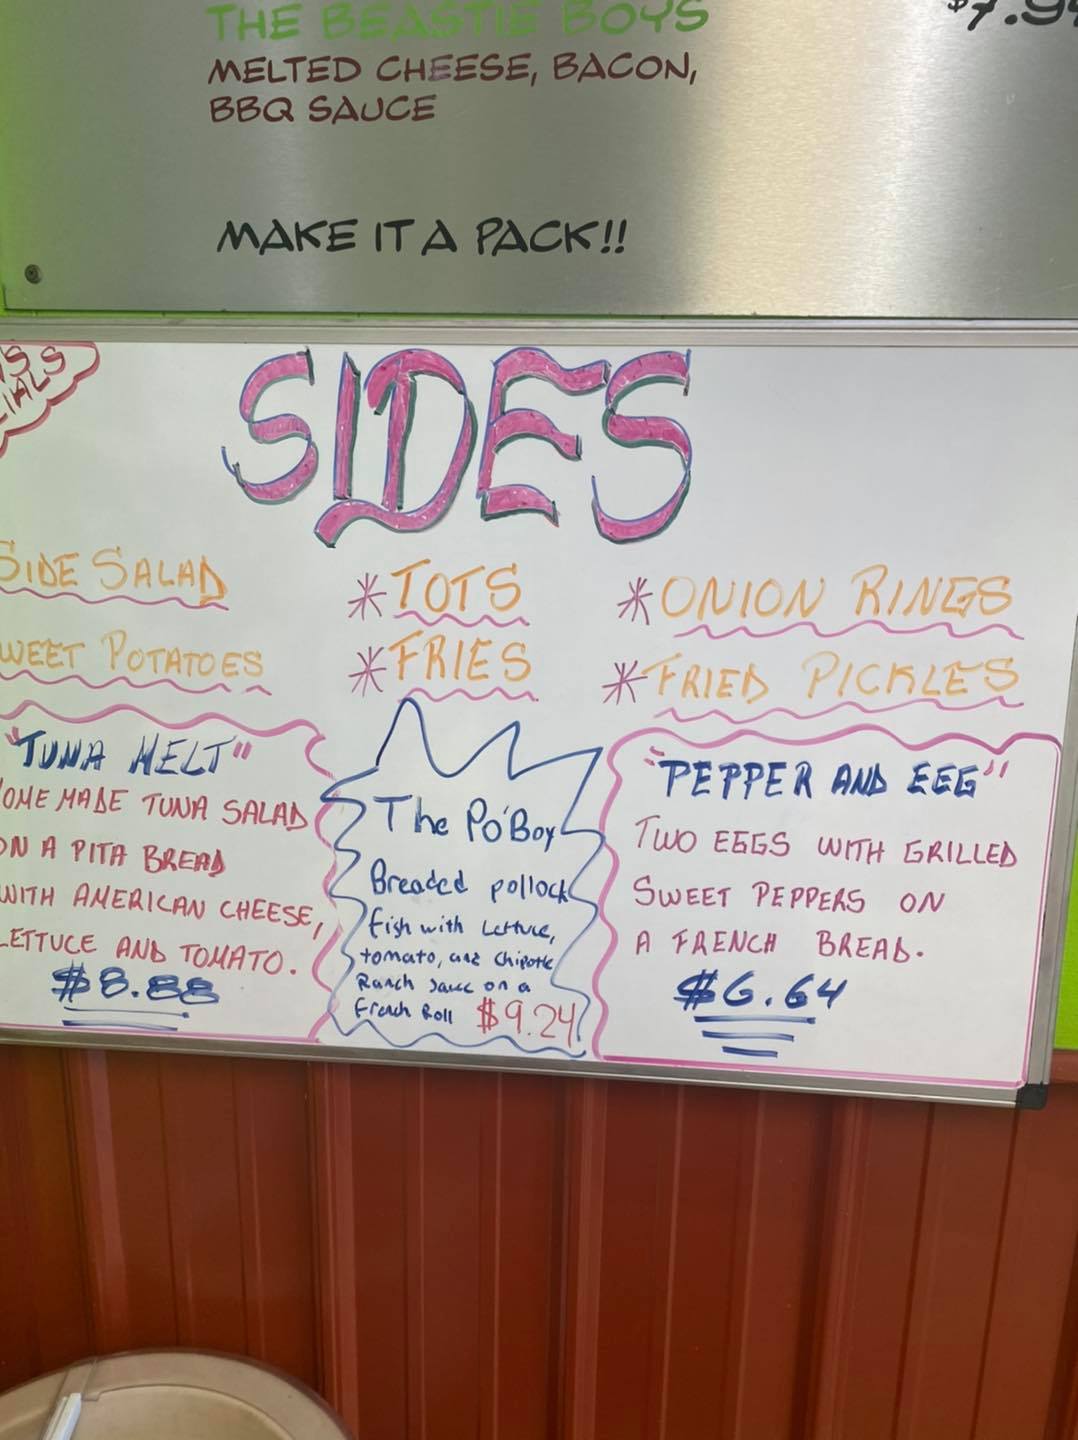 THE BEASTIE BOYS
MELTED CHEESE, BACON,
BBQ SAUCE
MAKE IT A PACK!!
SIDES
SIDE SALAD
*TOTS
*ONION RINGS
WEET POTATOES
*FRIES
*FRIED PICKLES
"TUNA MELT"
OME MADE TUNA SALAD
ON A PITA BREAD
WITH AMERICAN CHEESE,
LETTUCE AND TOMATO.
$8.88
The Po'Boy
Breaded pollock
Fish with Lettuce,
tomato, and Chipotle
Ranch Sauce on a
French Roll $9.24
"PEPPER AND EGG"
TWO EGGS WITH GRILLED
SWEET PEPPERS ON
A FRENCH BREAD.
$6.64